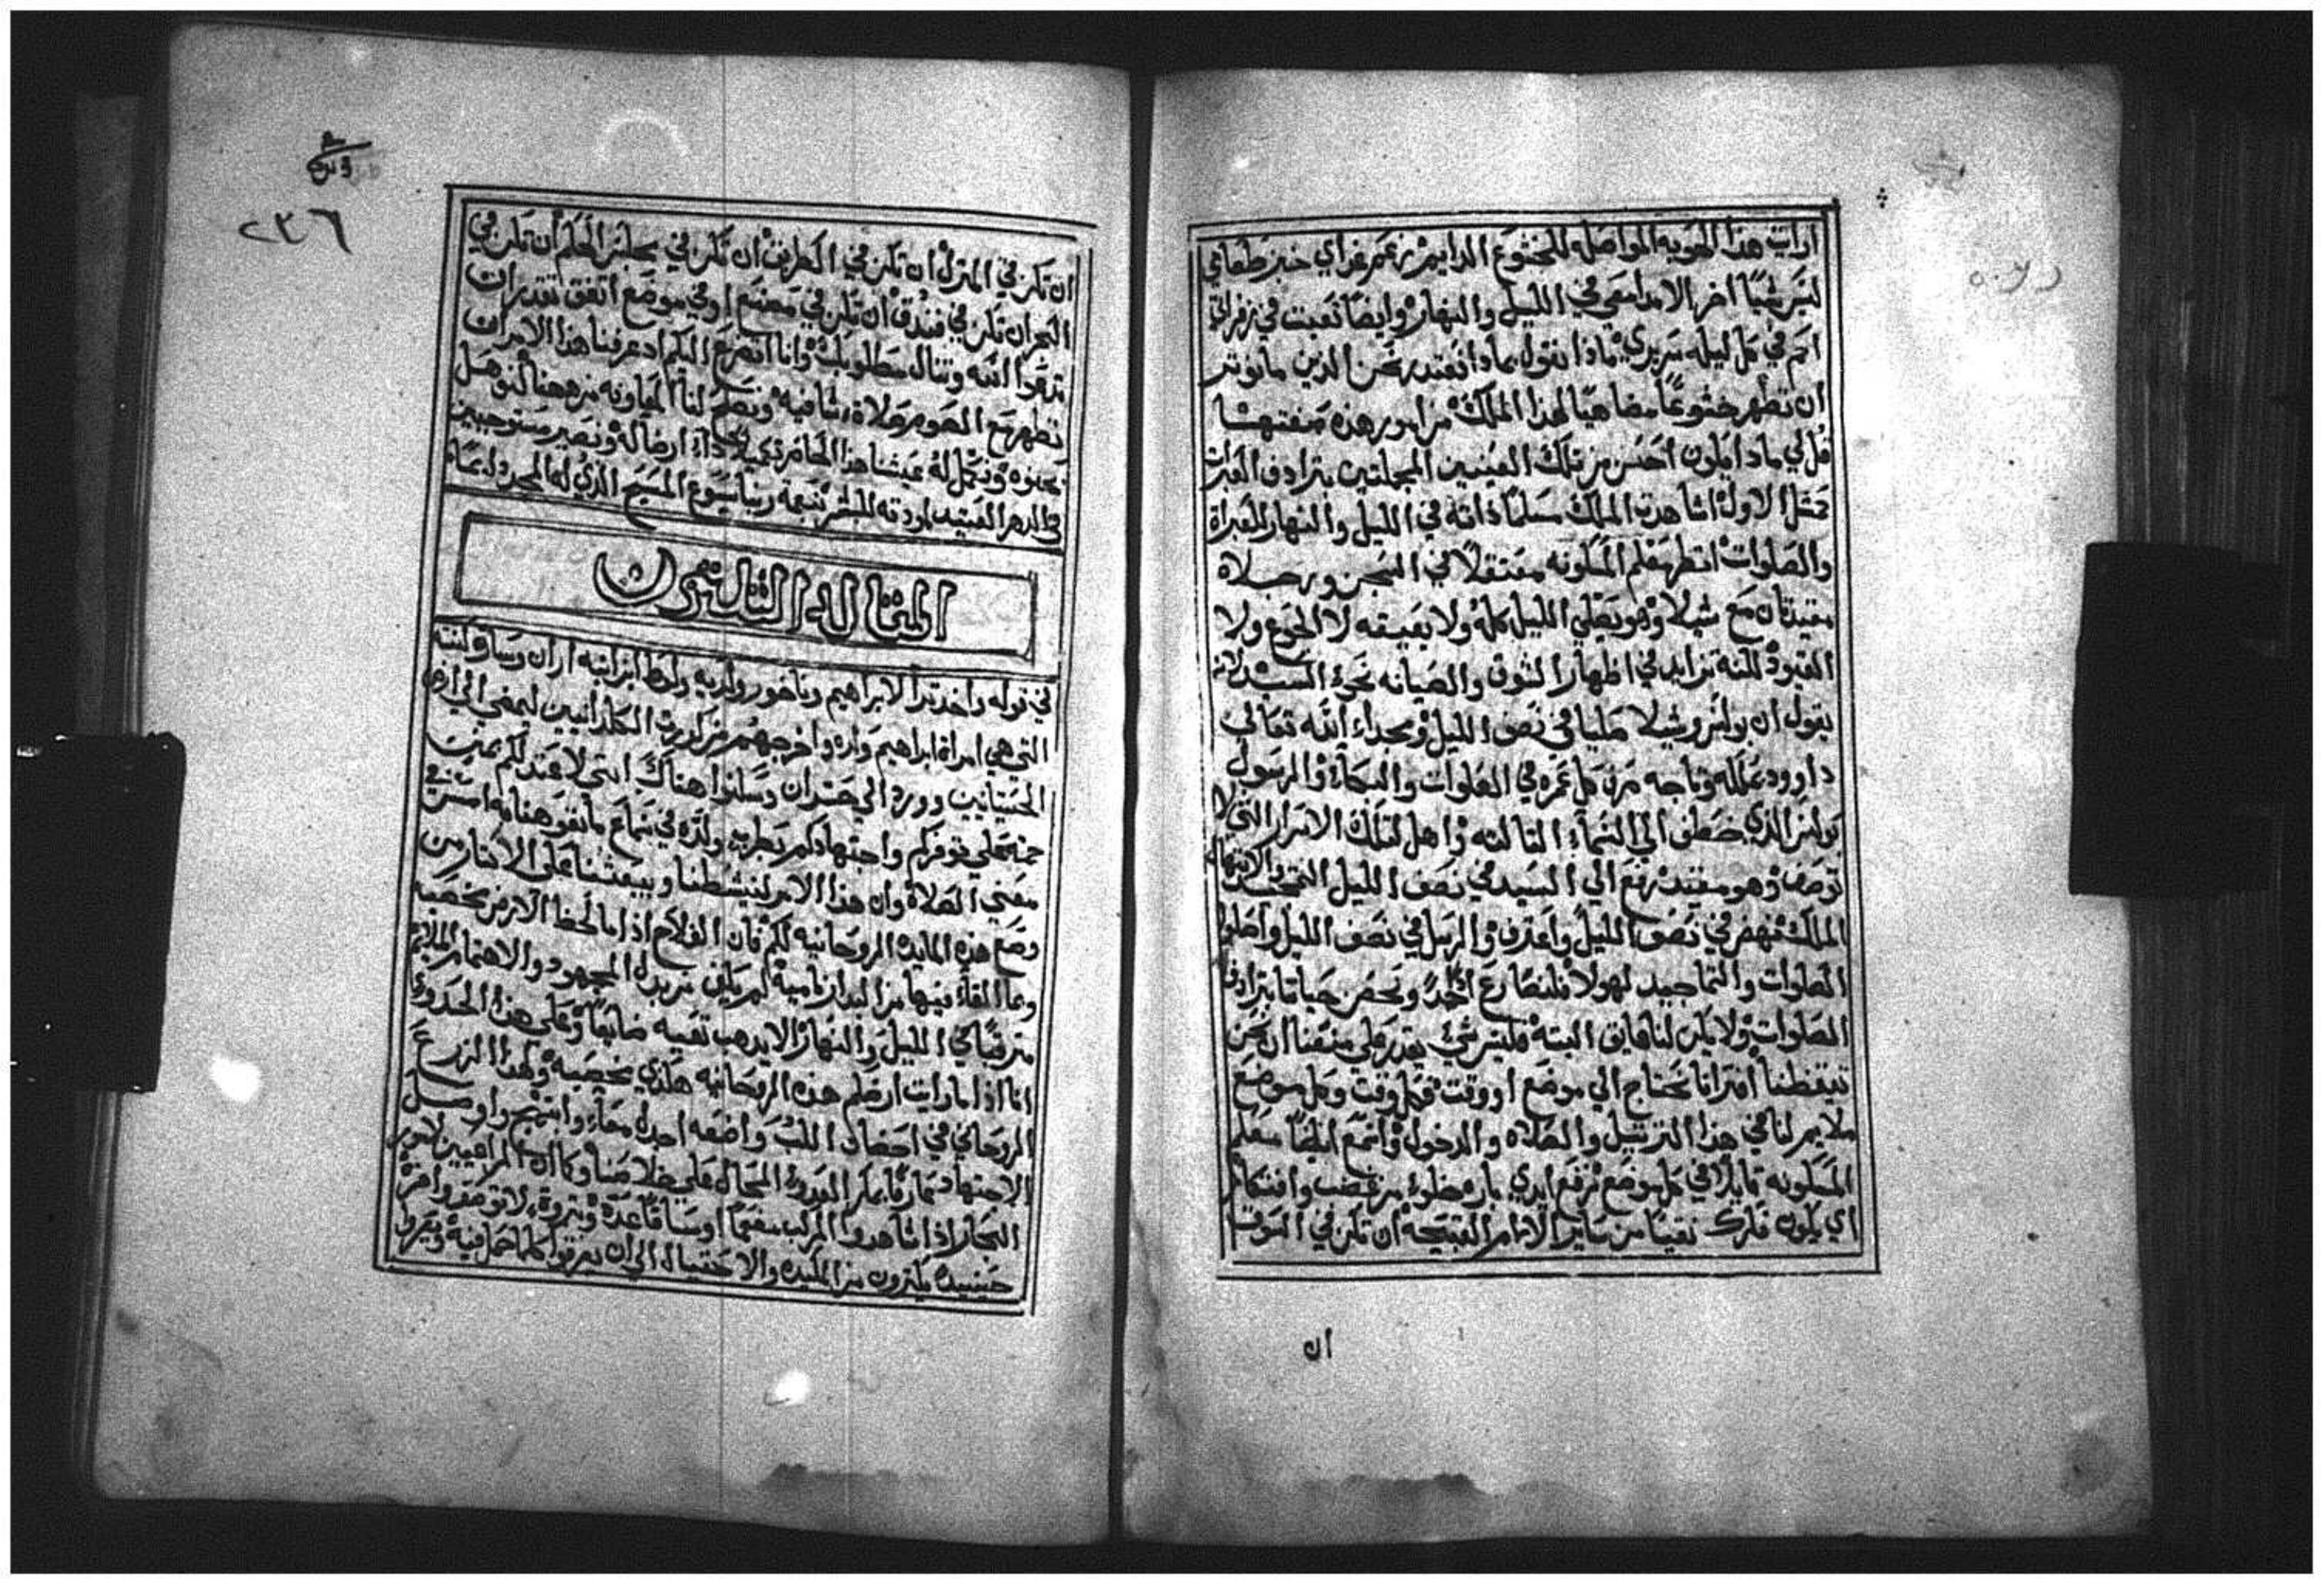 ارايت هذا الهويه المواصله للخشوع الدايم زعم غراي خبز طعامي
ليس شيا اخر الا مدامعي في الليل والنهار وايضا تعبت في زفراتي
احم في كل ليله سريري ماذا نقول بماذا نعتدر نحن الذين مانوتر
ان نظهر خشوعا مضاهيا لهذا الملك من امور هذه صفتها
قل لي ماذا يكون احسن من تلك العينين المجملتين بترادف العبرات
كمثل الاولو اشاهدت الملك مسلما ذاته في الليل والنهار للعبراة
والصلوات انظر معلم المسكونه معتقلا في السجن ورجلاه
مقيدتان مع شيلا وهو يصلي الليل كله ولا يعيقه لا الوجع ولا
القيود لكنه تزايد في اظهار الشوق والصيانه نحو السيد لانه
يقول ان بولس وشيلا صليا في نصف الليل ومجداء الله تعالي
داوود بملكه وتاجه صرف كل عمره في الصلوات والبكاء والرسول
بولس الذي خطف الي السماء التالته واهل لتلك الاسرار التي لا
توصف وهو مقيد رفع الي السيد في نصف الليل التمجيد والابتهال
الملك نهض في نصف الليل واعترف والرسل في نصف الليل واصلوا
الصلوات والتماجيد لهولا فلنضارع نحن ونحصن حياتنا بترادف
الصلوات ولا يكن لنا عايق البته فليس شي يقدر علي منعنا ان نحن
تيقظنا افترانا نحتاج الي موضع او وقت فكل وقت وكل موضع
ملايم لنا في هذا الترتيل والصلاه والدخول واسمع ايضا معلم
المسكونه قايلا في كل موضع نرفع ايدي باره خلوا من غضب وافتكار
اي يكون فكرك نقيا من ساير الالام القبيحه ان تكن في السوق
ان
٢٣٦
ان تكن في المنزل ان تكن في الطريق ان تكن في مجلس الحكم ان تكن في
البحر ان تكن في فندق ان تكن في مصنع او في موضع اتفق تقدر ان
تدعوا الله وتنال مطلوبك وانا اتضرع اليكم اد عرفنا هذا الامر ان
نظهر مع الصوم صلاة شافيه ونصلح لنا المعاونه من ههنا لنوهل
لحنوه ونكمل له عيشنا هذا الحاضر كمثل اداء ارضا له ونصير مستوجبين
في الدهر العتيد لمودته للبشر بنعمة ربنا يسوع المسيح الذي له المجد دايما
المقاله التالتون
في قوله واخد تدا لابراهيم وناخور ولديه ولوط ابن ابنه اران وسارة كنته
التي هي امراة ابراهيم ولده واخرجهم من كورة الكلدانيين ليمضي الي ارض
الحيتانيين وورد الي حران وسكنوا هناك انني لاعتد لكم بمنت
جمه علي توفركم واجتهادكم بطربه ولذه في سماع ما نفوهنا به امس في
معني الصلاة وان هذا الامر لينشطنا ويبعثنا علي الاكتار من
وضع هذه المايده الروحانيه لكم فان الفلاح اذا ما لحظ الارض مخصبه
وعا القاء فيها من البدار نامية لم يكن من بدل المجهود والاهتمام الملايم
مترقبا في الليل والنهار لالا يدهب تعبه ضايعا وعلي هذا الحدو
انا اذا ما رايت ارضكم هذه الروحانيه هكذي مخصبه ولهذا الزرع
الروحاني في احضان اللب واضعه اجدل معاء وابتهج واوصل
الاجتهاد عارفا بمكر العدو المحال علي خلاصنا وكما ان المراقيين لامور
البحار اذا شاهدوا المركب مفعما اوسقا قاعدة وبتروة لا توصف واخرة
حينيده يكترون من المكيده والاحتيال الي ان يغرقوا كلما حمل فيه ويعروا